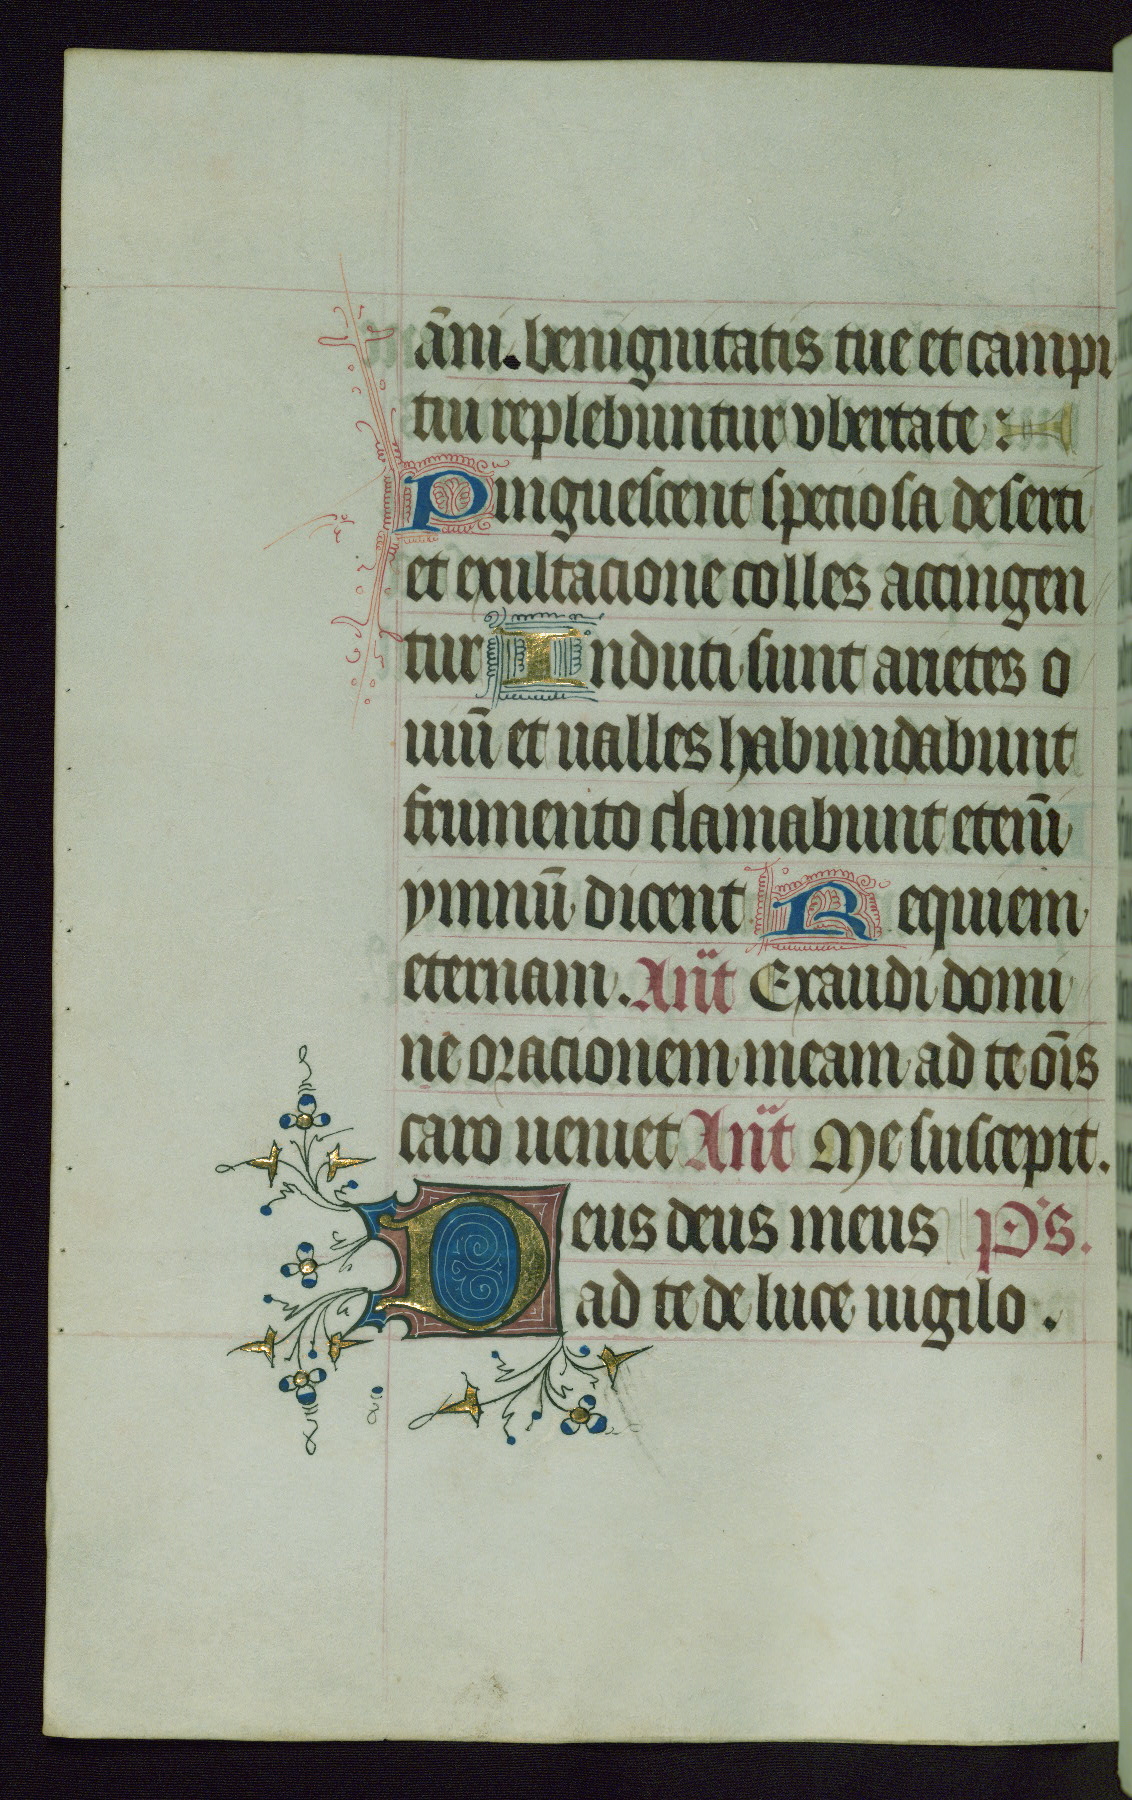 āni. benignitatis tue et campi
tui replebuntur vbertate :
Pinguescent speciosa deserti
et exultacione colles accingen
tur Induti sunt arietes o
uiū et ualles habundabunt
frumento clamabunt etenī
ymnū dicent Requiem
eternam. Añt Exaudi domi
ne oracionem meam ad te oīs
caro ueniet Añt Me suscepit.
Deus deus meus Ps.
ad te de luce uigilo .